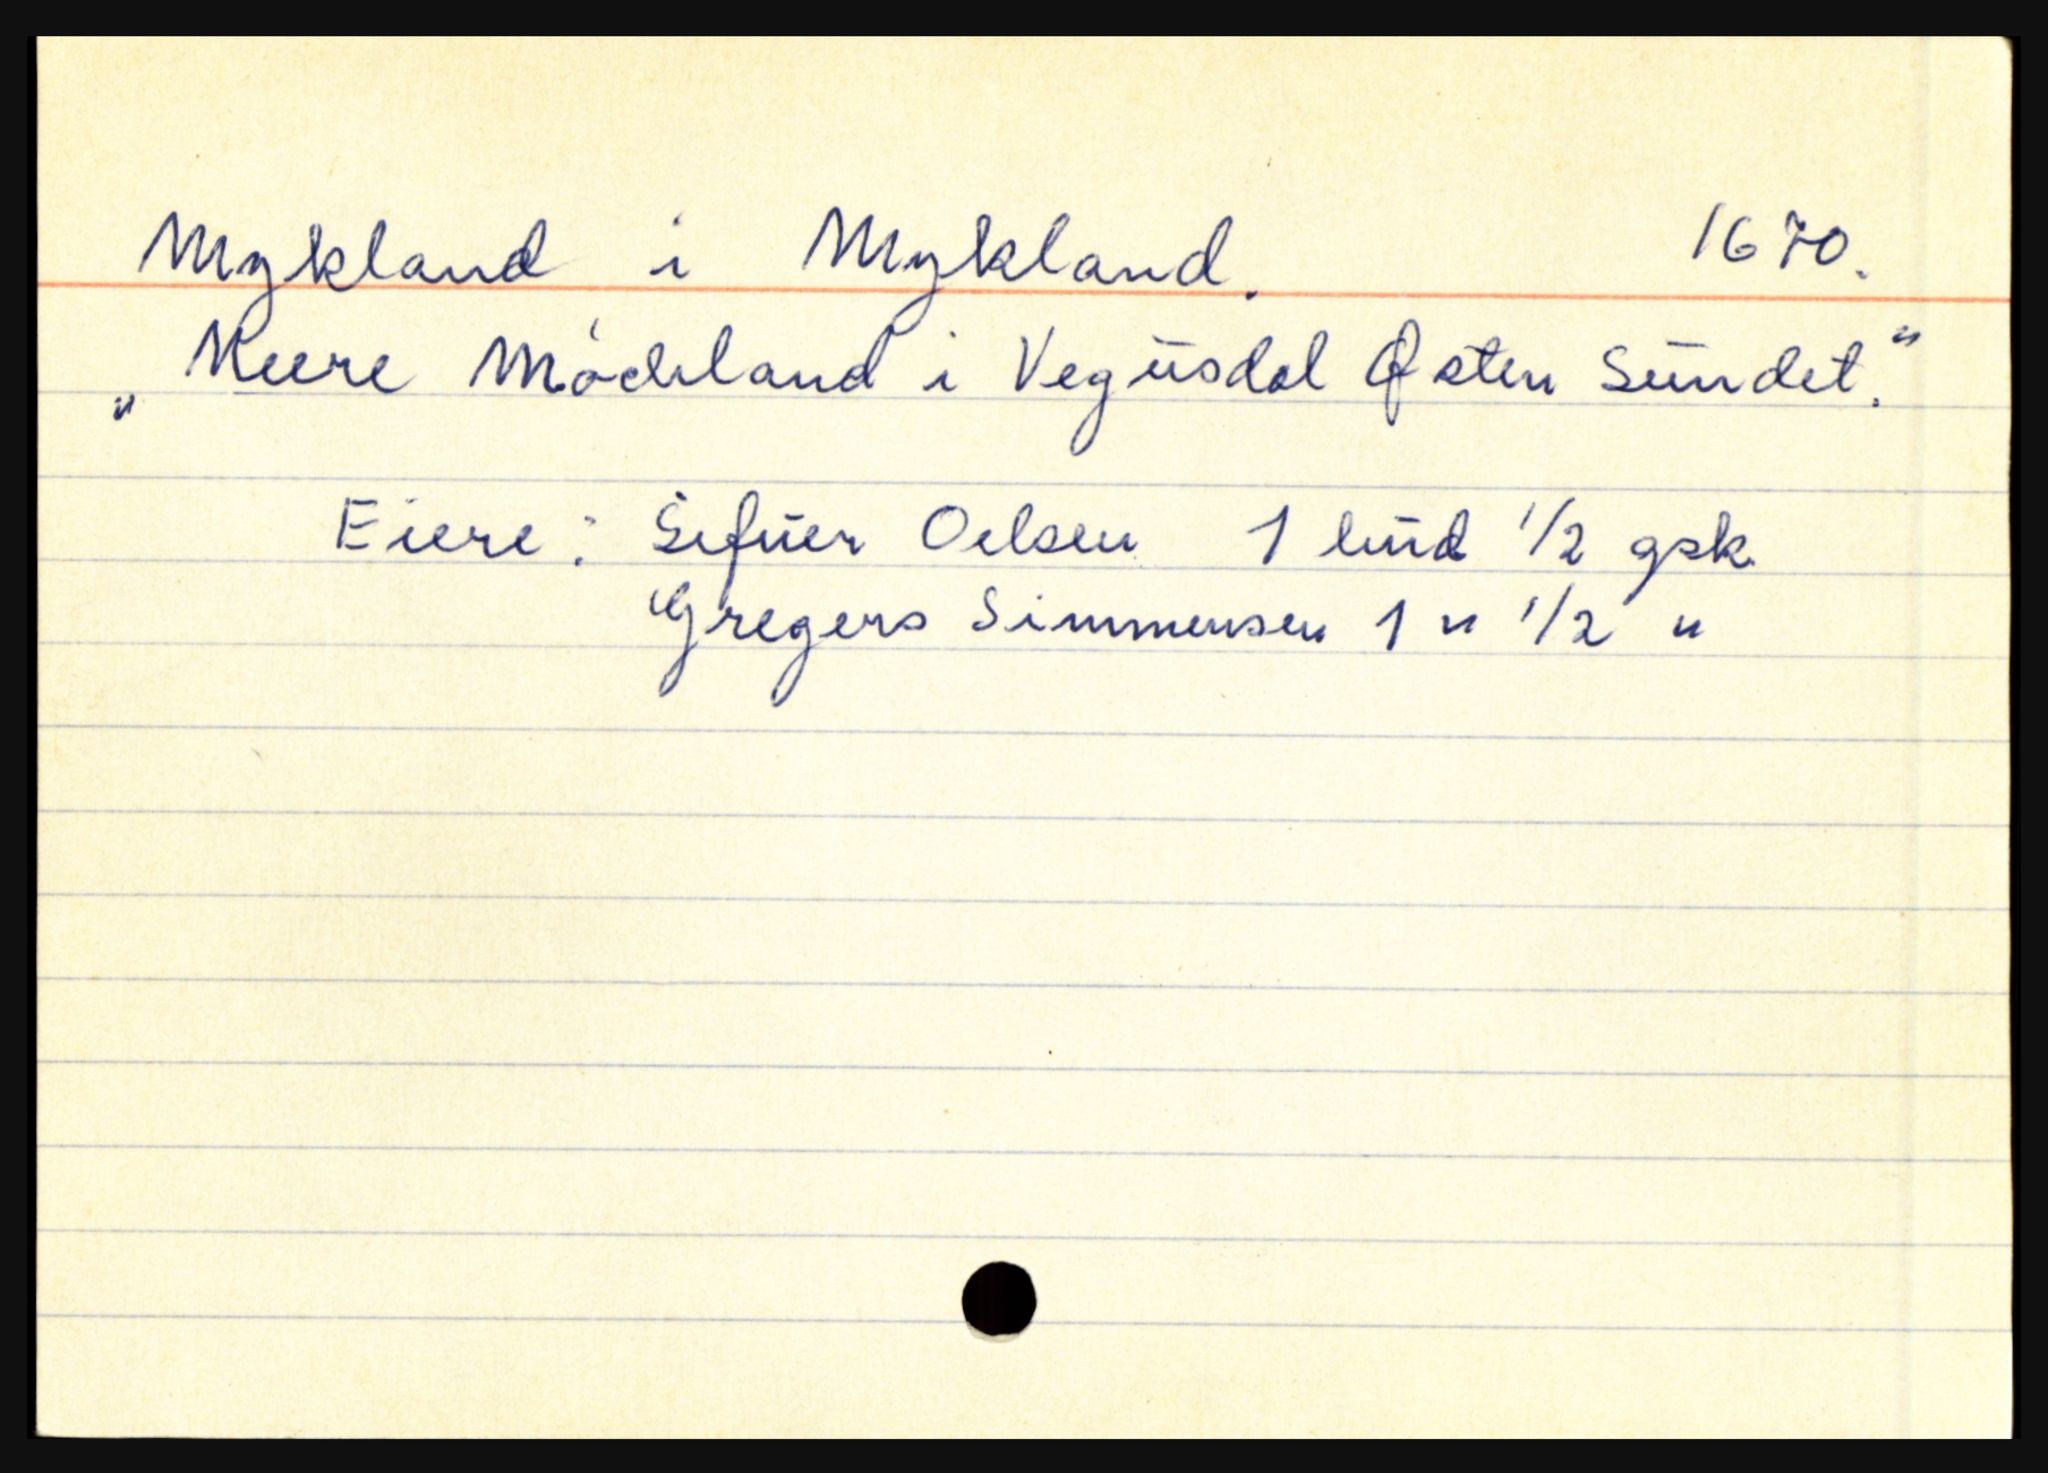 Mykland i Mykland. 1670.
„Meere Móchland i Vegusdal Østen Sundet.“
Eiere: Sefuer Oelsen 1 hud 1/2 gsk.
Gregers Simmensen 1 " 1/2 "